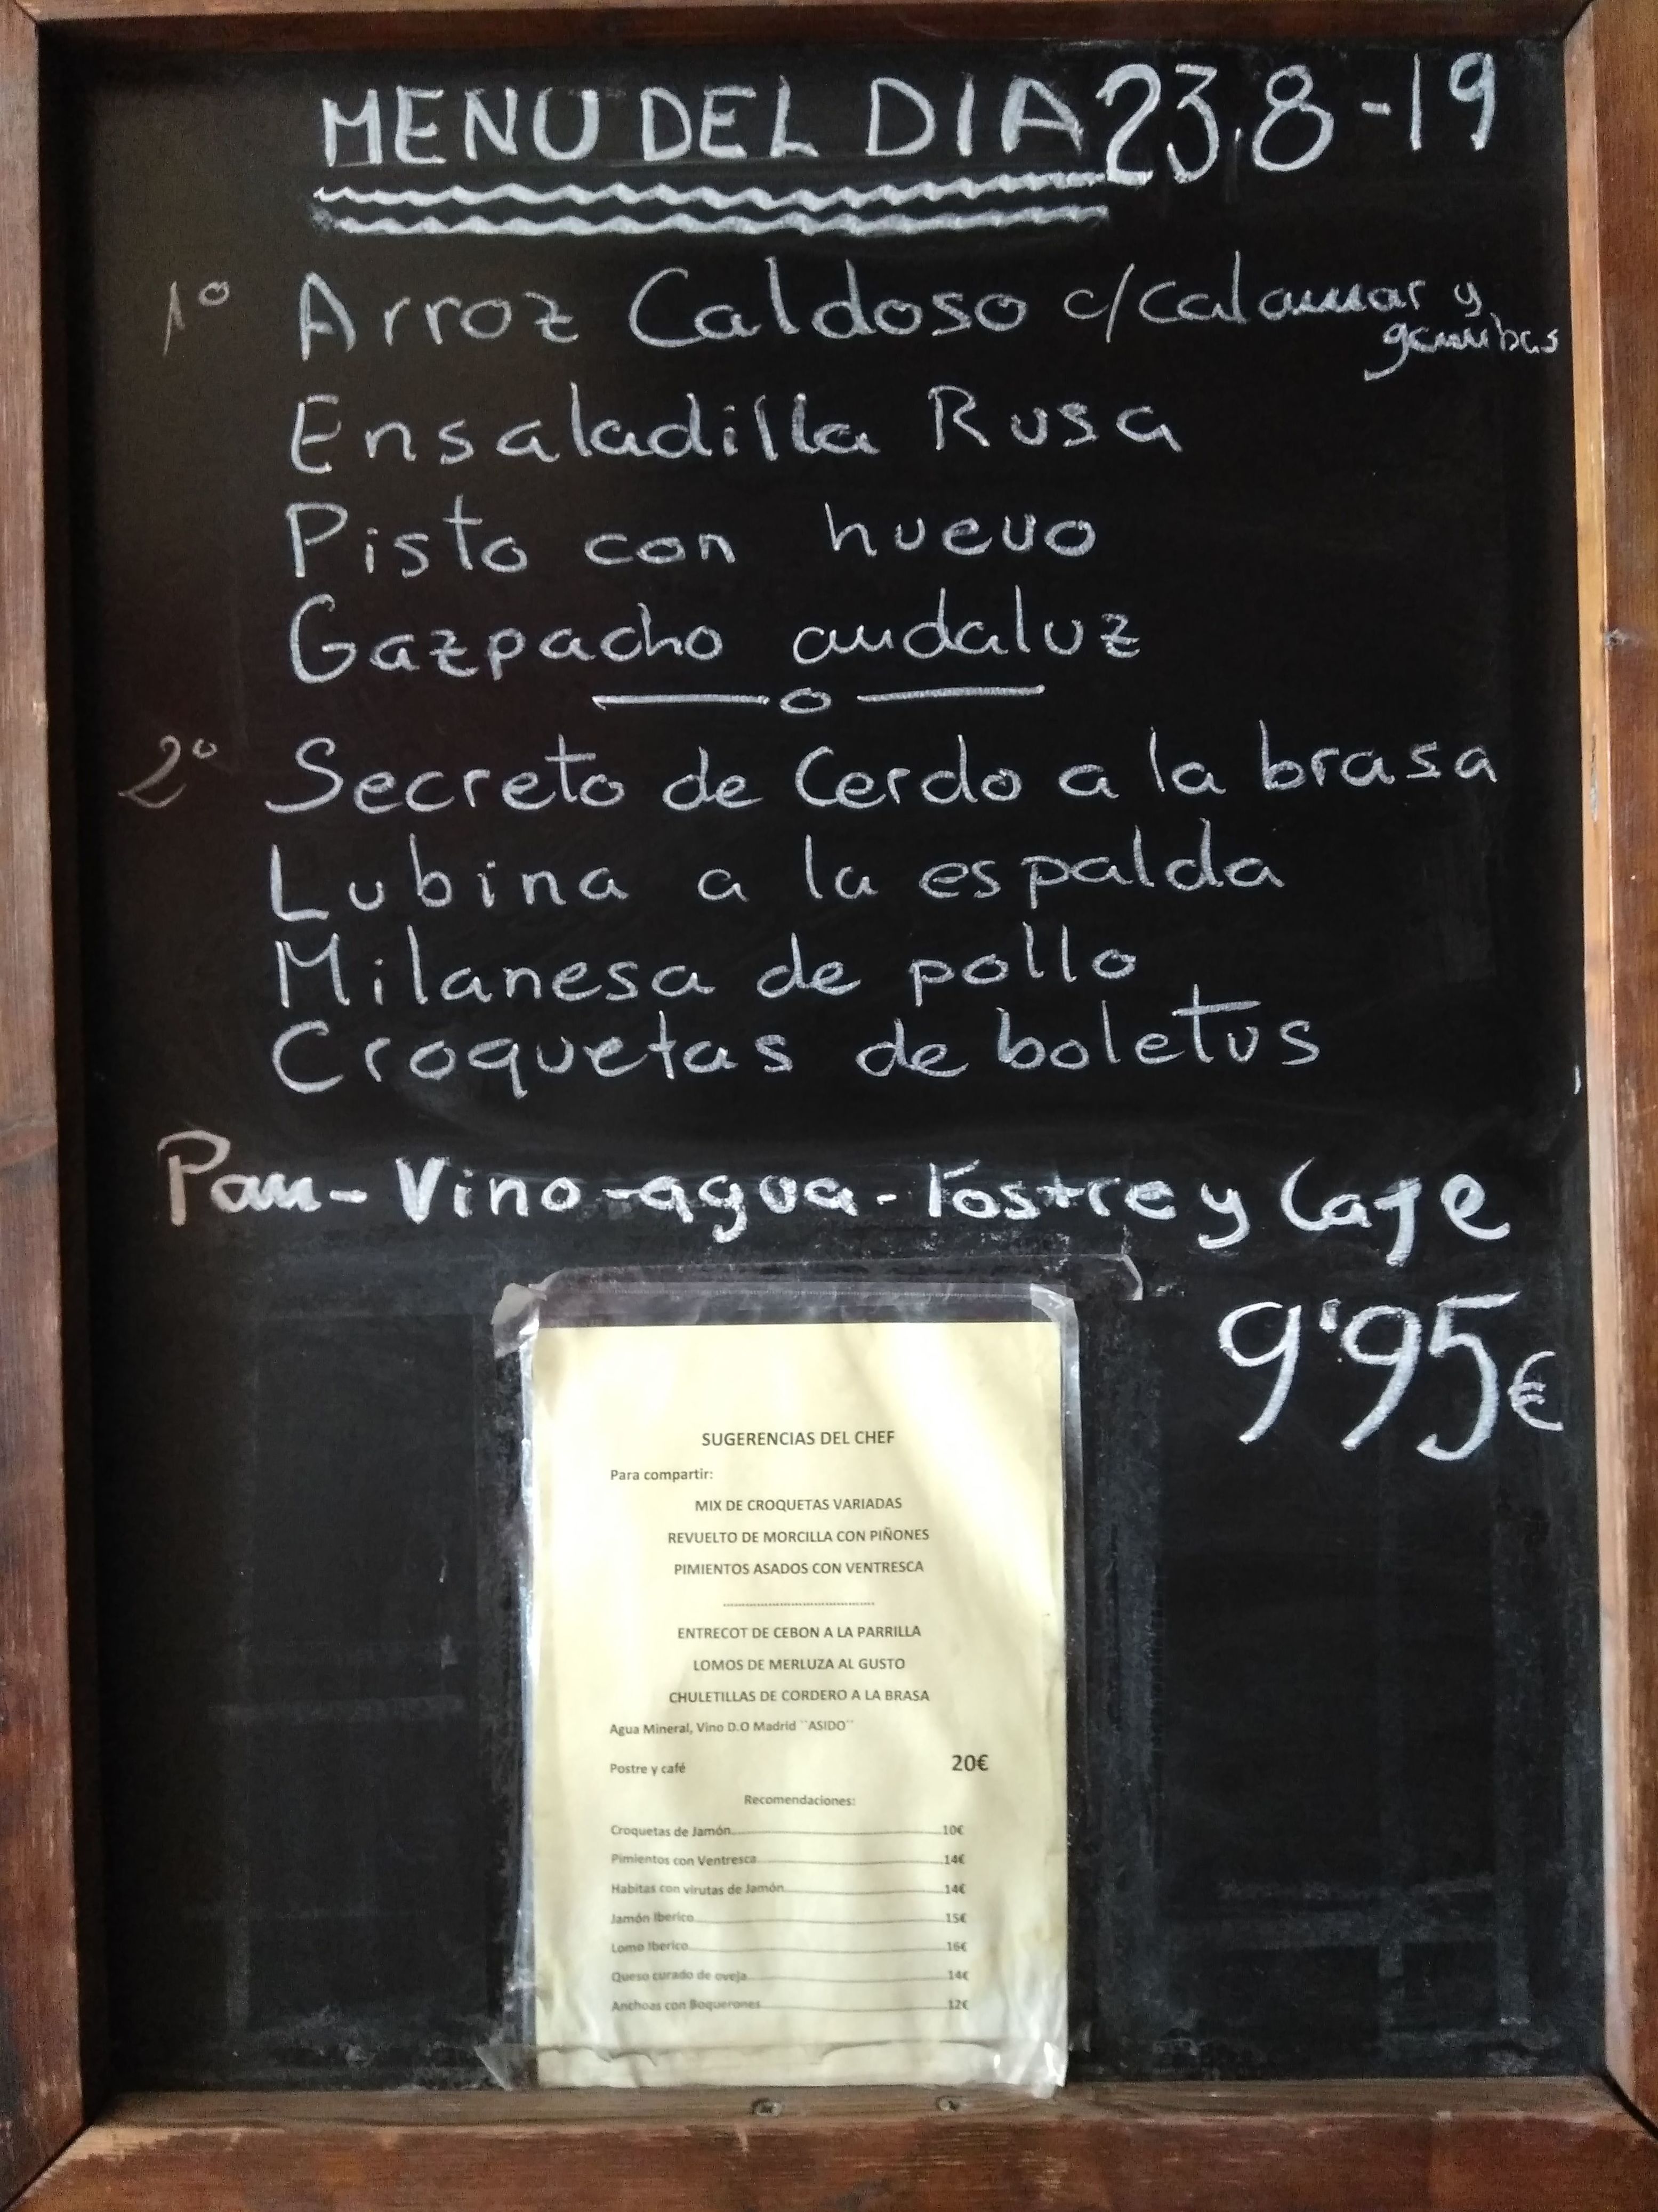 MENU DEL DIA 23.8-19
1º Arroz Caldoso c/calamar y
gambas
Ensaladilla Rusa
Pisto con huevo
Gazpacho andaluz
—o—
2º Secreto de Cerdo a la brasa
Lubina a la espalda
Milanesa de pollo
Croquetas de boletus
Pan-Vino-agua-Postre y Cafe
9'95€
SUGERENCIAS DEL CHEF
Para compartir:
MIX DE CROQUETAS VARIADAS
REVUELTO DE MORCILLA CON PIÑONES
PIMIENTOS ASADOS CON VENTRESCA
........................................
ENTRECOT DE CEBON A LA PARRILLA
LOMOS DE MERLUZA AL GUSTO
CHULETILLAS DE CORDERO A LA BRASA
Agua Mineral, Vino D.O Madrid ``ASIDO``
Postre y café 20€
Recomendaciones:
Croquetas de Jamón........................................10€
Pimientos con Ventresca........................................14€
Habitas con virutas de Jamón........................................14€
Jamón Iberico........................................15€
Lomo Iberico........................................16€
Queso curado de oveja........................................14€
Anchoas con Boquerones........................................12€